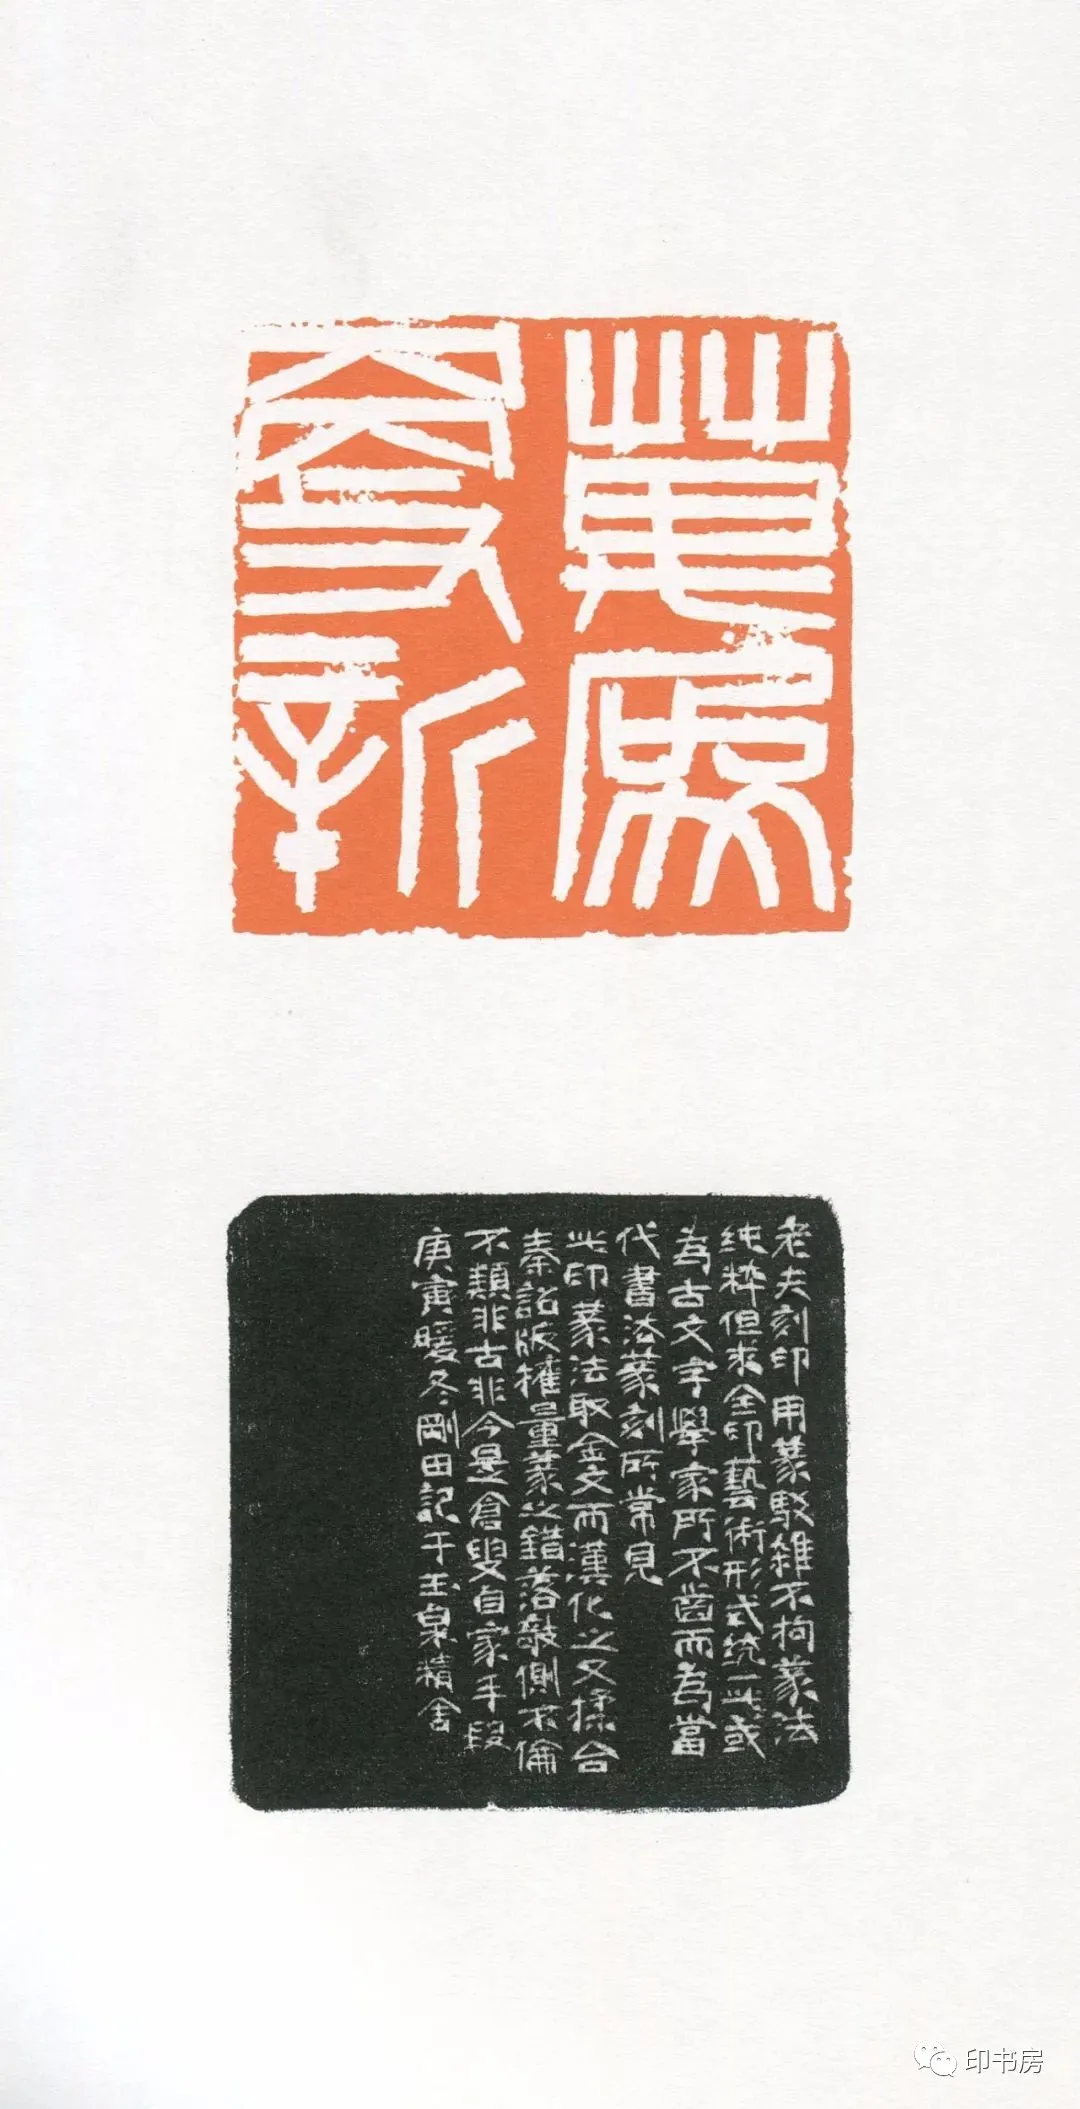 萬象
更新
老夫刻印用篆駁雜不拘篆法
純粹但求全印藝術形式統一此或
為古文字學家所不齒而為當
代書法篆刻所常見
此印篆法取金文而漢化之又揉合
秦詔版權量篆之錯落敧側不倫
不類非古非今是倉叟自家手段
庚寅暖冬剛田記于玉泉精舍
印书房